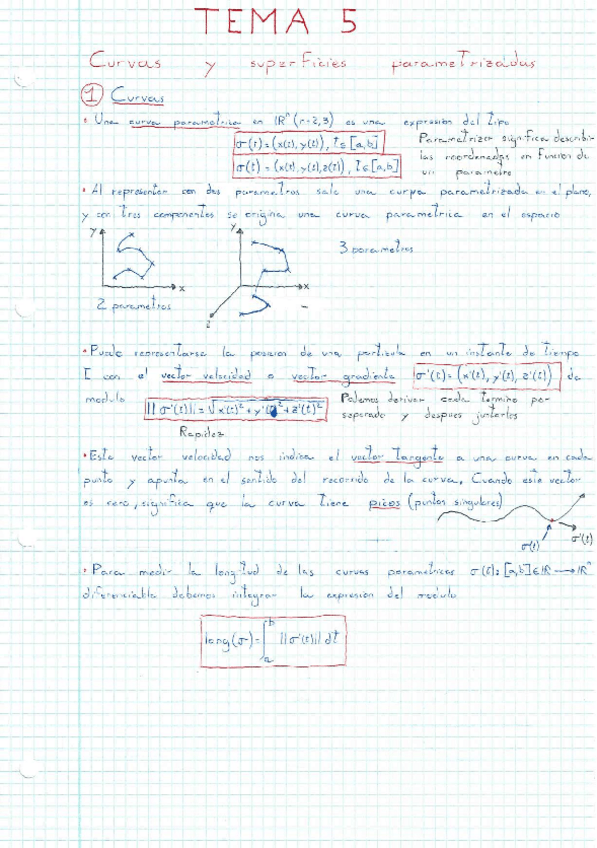 TEMA 5
Curvas y superficies parametrizadas
1 Curvas
• Una curva parametrica en IRⁿ (r=2,3) es una expresion del tipo
σ(t)=(x(t), y(t)), t∈[a,b]
Parametrizar significa describir
las coordenadas en funcion de
un parametro
σ(t)=(x(t), y(t), z(t)), t∈[a,b]
• Al representar con dos parametros sale una curva parametrizada en el plano,
y con tres componentes se origina una curva parametrica en el espacio
y
y
3 parametros
x
x
2 parametros
z
• Puede representarse la posicion de una particula en un instante de tiempo
t con el vector velocidad o vector gradiente σ'(t)=(x'(t), y'(t), z'(t)) de
modulo ||σ'(t)||=√x'(t)²+y'(t)²+z'(t)²
Podemos derivar cada termino por
separado y despues juntarlos
Rapidez
• Este vector velocidad nos indica el vector tangente a una curva en cada
punto y apunta en el sentido del recorrido de la curva. Cuando este vector
es cero, significa que la curva tiene picos (puntos singulares)
σ(t)
σ'(t)
• Para medir la longitud de las curvas parametricas σ(t):[a,b]∈IR→IRⁿ
diferenciable debemos integrar la expresion del modulo
long(σ)=∫ₐᵇ ||σ'(t)|| dt